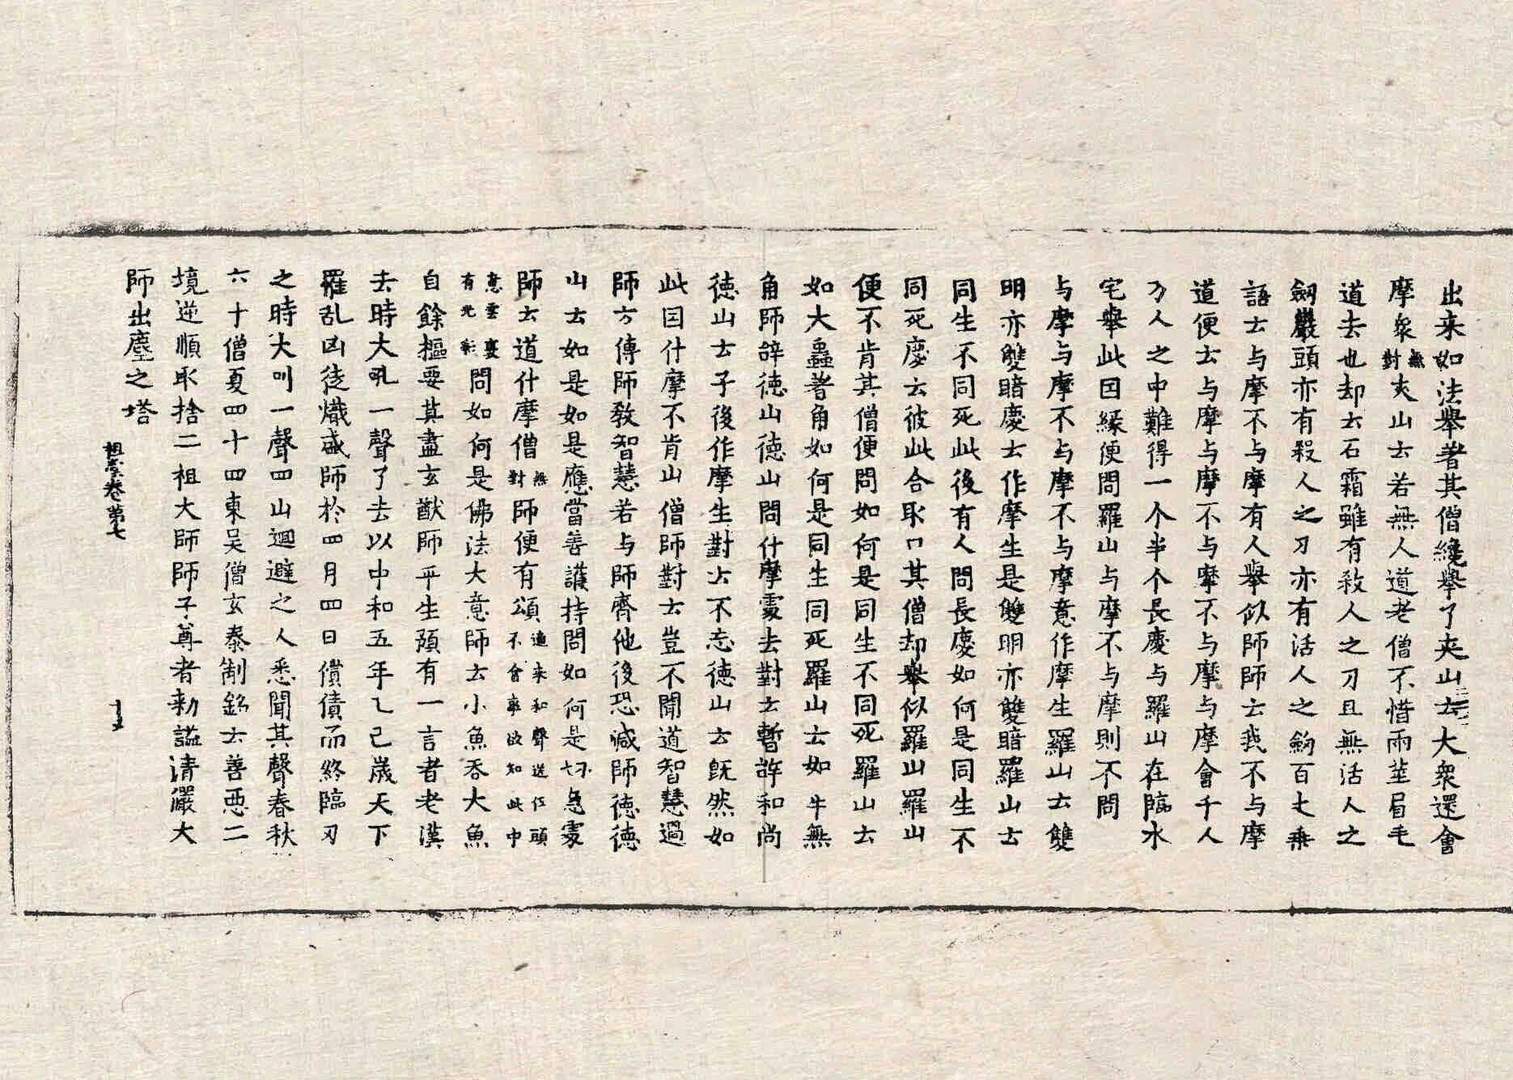 出来如法舉著其僧纔舉了夾山云大衆還會
摩衆無對夾山云若無人道老僧不惜兩莖眉毛
道去也却云石霜雖有殺人之刀且無活人之
劒巖頭亦有殺人之刀亦有活人之劒百丈垂
語云与摩不与摩有人舉似師師云我不与摩
道便云与摩与摩不与摩不与摩与摩會千人
万人之中難得一个半个長慶与羅山在臨水
宅舉此因緣便問羅山与摩不与摩則不問
与摩与摩不与摩不与摩意作摩生羅山云雙
明亦雙暗慶云作摩生是雙明亦雙暗羅山云
同生不同死此後有人問長慶如何是同生不
同死慶云彼此合取口其僧却舉似羅山羅山
便不肯其僧便問如何是同生不同死羅山云
如大蟲著角如何是同生同死羅山云如牛無
角師辞徳山徳山問什摩處去對云暫辞和尚
徳山云子後作摩生對云不忘徳山云既然如
此因什摩不肯山僧師對云豈不聞道智慧過
師方傳師教智慧若与師齊他後恐減師徳徳
山云如是如是應當善護持問如何是切急處
師云道什摩僧無對師便有頌
意雲慶有光彩問如何是佛法大意師云小魚吞大魚
自餘樞要其盡玄猷師平生預有一言者老漢
去時大吼一聲了去以中和五年乙巳歲天下
羅乱凶徒熾盛師於四月四日償債而終臨刃
之時大叫一聲四山迴避之人悉聞其聲春秋
六十僧夏四十四東吴僧玄泰制銘云善惡二
境逆順取捨二祖大師師子尊者勑諡清儼大
師出塵之塔
祖堂卷第七
十五